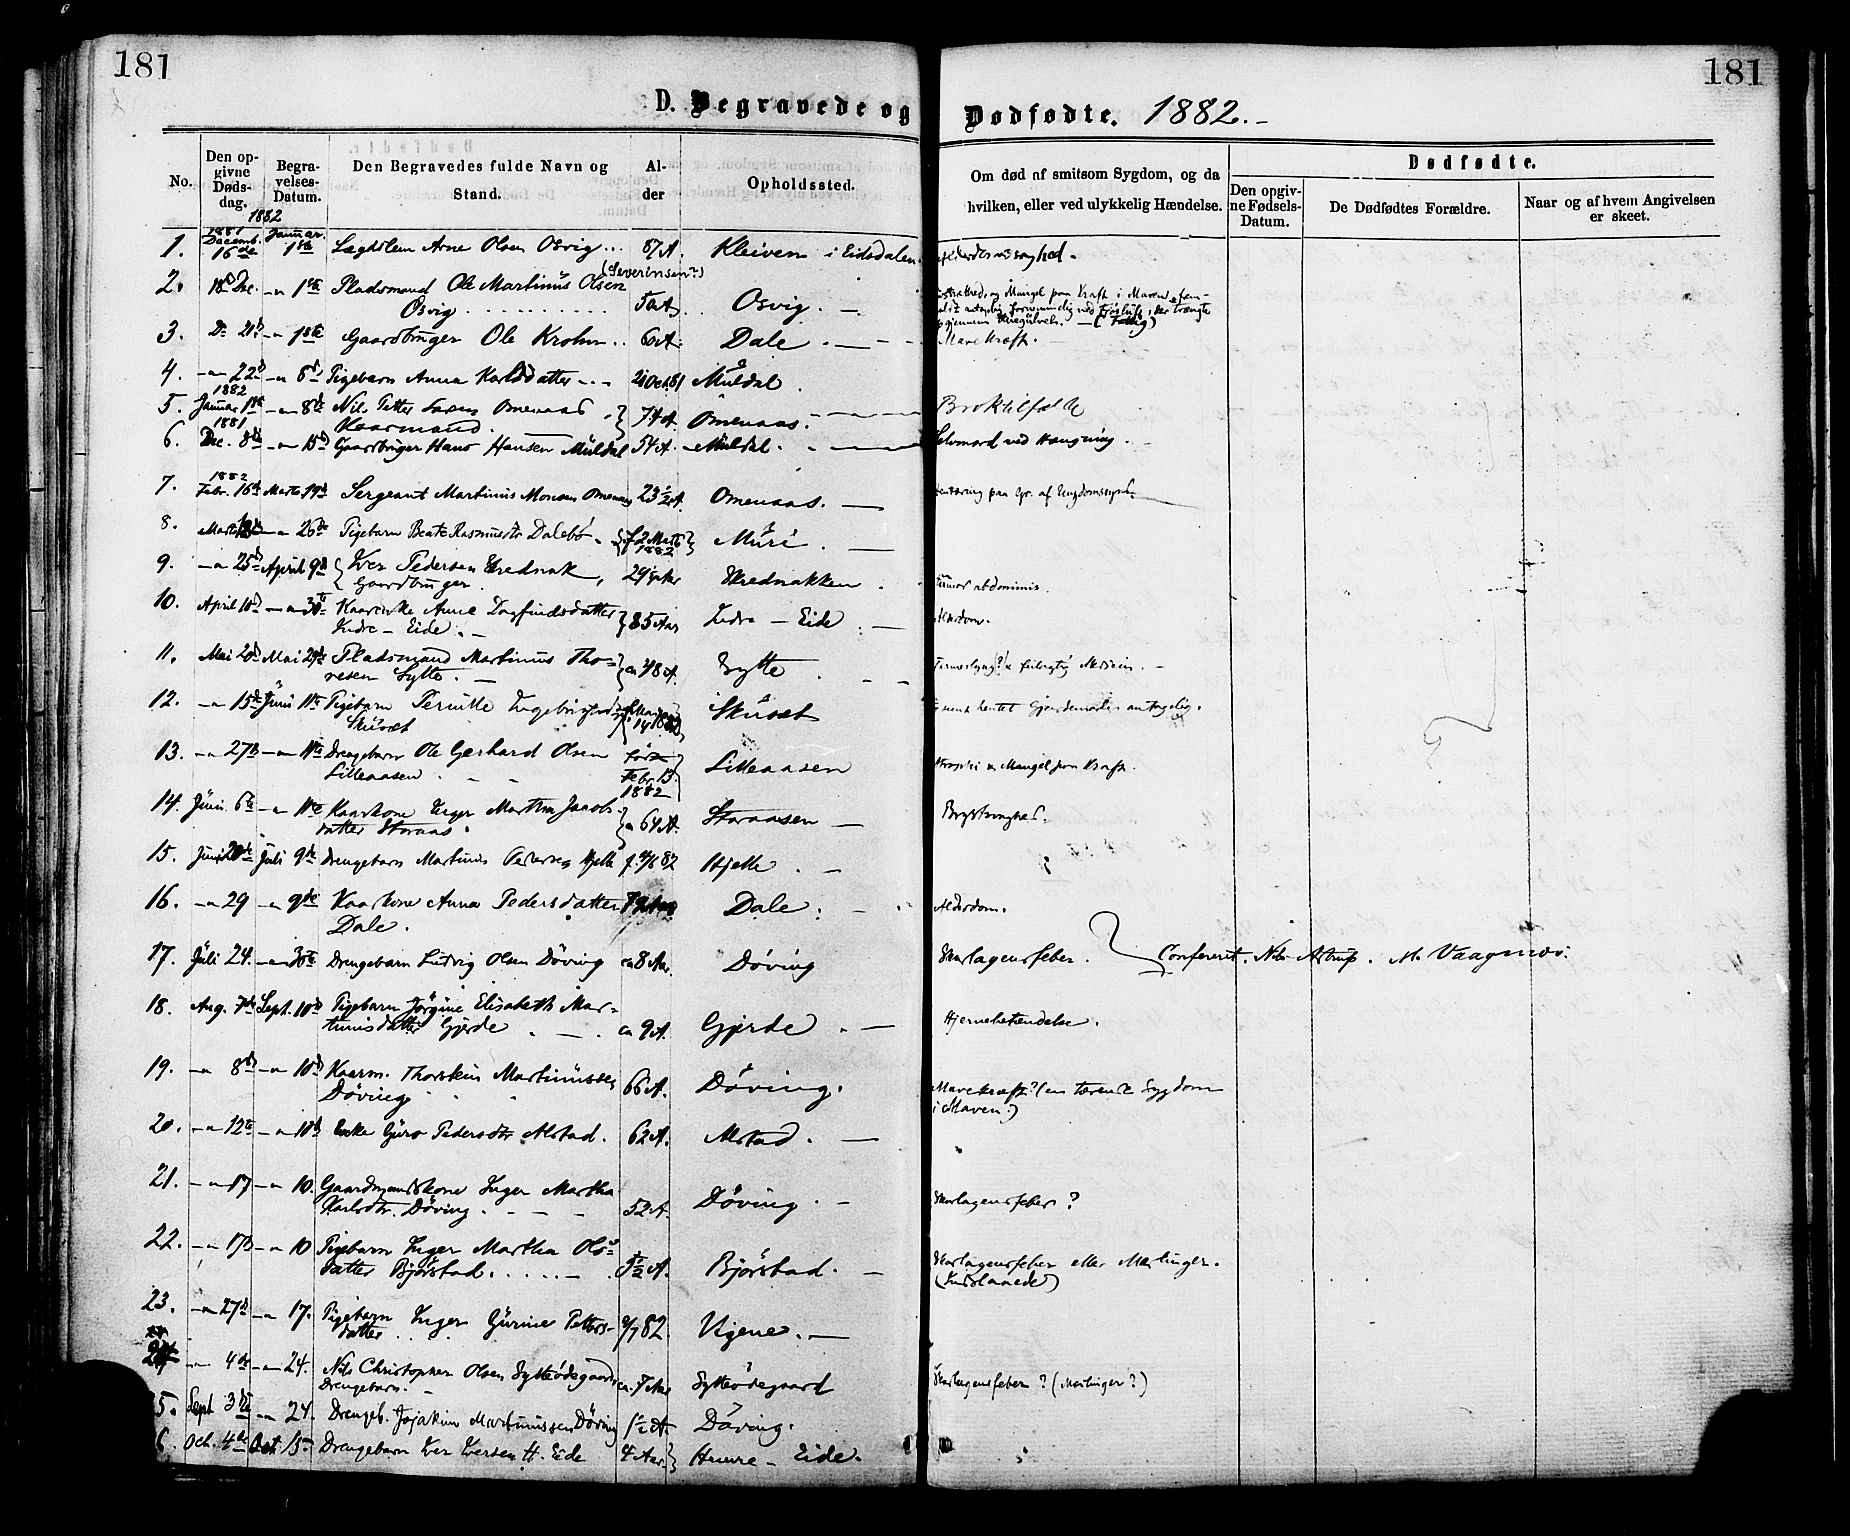 181
181
D. Begravede og Dødfødte. 1882.-
No.
Den opgivne Dødsdag.
Begravelses-Datum.
Den Begravedes fulde Navn og Stand.
Alder
Opholdssted.
Om død af smitsom Sygdom, og da hvilken, eller ved ulykkelig Hændelse.
Dødfødte.
Den opgivne Fødsels-Datum.
De Dødfødtes Forældre.
Naar og af hvem Angivelsen er skeet.
1. 1881 Decemb. 16de 1882 Januar 1ste Lægdslem Arne Olsen Osvig 87 A. Kleiven i Eidsdalen Alderdomssvaghed.
2. 18de Dec. — " — 1ste Pladsmand Ole Martinus Olsen (Severinsen?)
Osvig 50 A. Osvig. Mangel paa Kraft i Maven
3. Do 21d — " — 1ste Gaardbruger Ole Krohn 60 A. Dale. Mavekræft.
4. — " — 22d — " — 8d Pigebarn Anna Karlsdatter 2/10 81 Muldal.
5. 1882 Januar 1ste — " — 8de Nils Petter Omenaas
Kaarmand. 74 A. Omenaas. Broktilfælde
6. 1881 Dec. 8de — " — 15d Gaardbruger Hans Hansen Muldal 54 A. Muldal. Selvmord ved Hængning.
7. 1882 Febr. 16de Marts 19d Sergeant Martinus Monsen Omenaas 23 1/2 A. Omenaas. — Tæring paa Gr. af Ungdomssynd.
8. Marts — " — 26de Pigebarn Beate Rasmusdtr Dalebø. f. 2 Marts
1882 Muri.
9. — " — 25d April 9d Iver Pedersen Skrednak,
Gaardbruger. 29 Aar Skrednakken. Tumor abdominis.
10. April 18d — " — 30te Kaarenke Anne Dagfindsdatter
Indre - Eide. 85 Aar Indre - Eide. Alderdom.
11. Mai 20d Mai 29de Pladsmand Martinus Tho-
resen Sytte. ca 48 A. Sytte.
12. — " — 15de Juni 11te Pigebarn Pernille Ingebrigtsdtr
Skuset Skuset
13. — " — 27d — " — 11te Drengebarn Ole Gerhard Olsen
Lilleaasen. født
Febr 13.
1882 Lilleaasen Atrophi Mangel paa Kraft.
14. Juni 6te — " — 11te Kaarkone Inger Martha Jacobs-
datter Storaas. 64 A. Storaasen — Brystsyghed.
15. Juni Juli 9de Drengebarn Martinus Hjelle f. 82 Hjelle.
16. — " — 29 — " — 9de Kaarkone Anna Pedersdatter
Dale. Dale. Alderdom.
17. Juli 24. — " — 30te Drengebarn Ludvig Olsen Døving ca 8 Aar. Døving Skarlagensfeber. Confereret. Nils Astrup. M. Vaagmæs.
18. Aug. 7de Sept. 10de Pigebarn Jørgine Elisabeth Mar-
tinusdatter Gjerde ca 9 A. Gjerde. — Hjernebetændelse.
19. — " — 8d — " — 10d Kaarm. Thorstein Martinussen
Døving 66 A. Døving. Mavekræft? (en tærende Sygdom
i Maven.)
20. — " — 12te — " — 10d Enke Guro Pedersdtr Alstad. 62 A. Alstad. —
21. — " — 17 — " — 10. Gaardmandskone Inger Martha
Karlsdtr. Døving. 52 A. Døving. — Skarlagensfeber?
22. — " — 17d — " — 10 Pigebarn Inger Martha Ols-
datter Bjørstad. 5 1/2 A. Bjørstad. — Skarlagensfeber eller Mæslinger.
(Indslaaede)
23. — " — 27d — " — 17. Pigebarn Inger Gurine Petters-
datter 9/7 82. Uigene. —
24. — " — 4de — " — 24. Nils Christopher Olsen Sytteødegaard
Drengebarn. ca. 7 Aar Sytteødegaard Skarlagensfeber? (Mæslinger?)
25. Sept 3die — " — 24. Drengeb. Jojakim Martinussen Døving 1 1/2 A. Døving.
6. Oct. 4de Oct 15 Drengebarn Iver Iversen H. Eide 4 Aar. Henre - Eide.